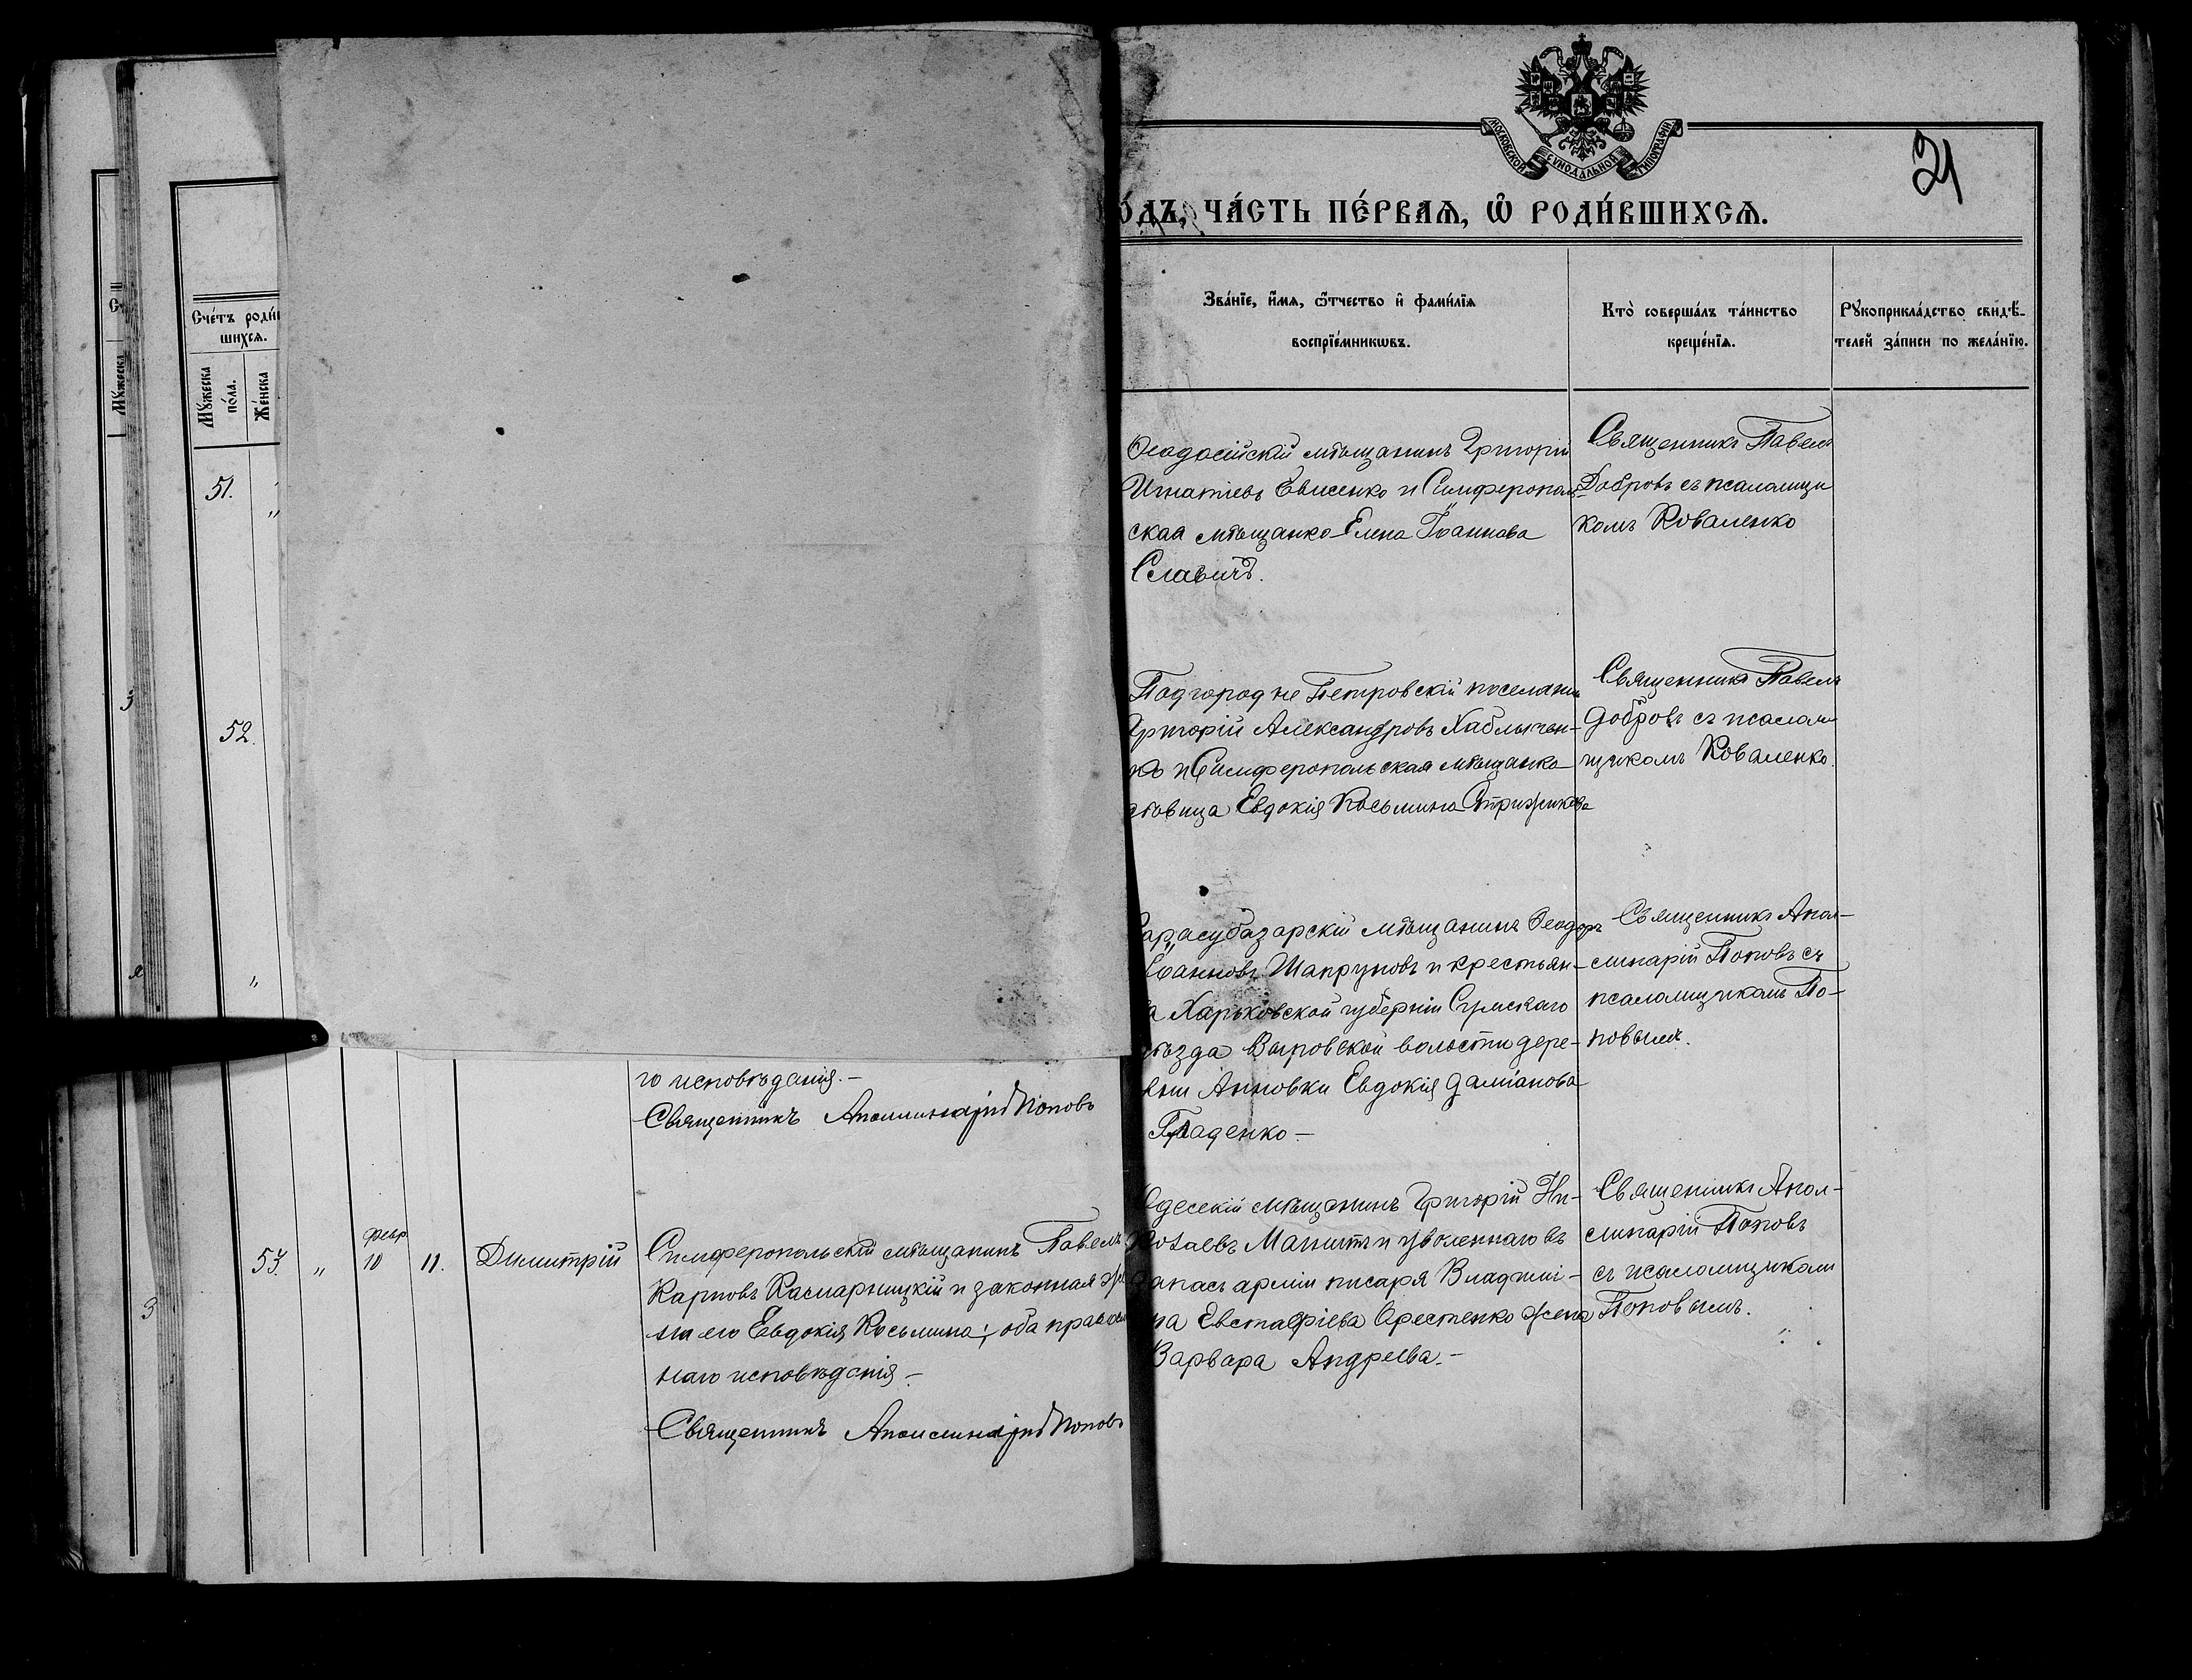 МОСКОВСКОЙ СѴНОДАЛЬНОЙ ТИПОГРАФІИ
21
о́дъ, ча́сть пе́рваѧ, ѿ роди́вшихсѧ.
Сче́тъ роди́
шихсѧ.
Мꙋ́жеска
по́ла.
Же́нска
Зва́нїе, и́мѧ, ѻ҆́тчество и҆ фами́лїѧ
воспрїе́мникѡвъ.
Кто̀ соверша́лъ та́инство
креще́нїѧ.
Рꙋкоприкла́дство свидѣ́-
телей за́писи по жела́нїю.
51.
Ѳеодосійскій мѣщанинъ Григорій
Игнатіевъ Евисенко и Симферополь-
ская мѣщанка Елена Іоаннова
Славичъ.
Священникъ Павелъ
Добровъ съ псаломщи
комъ Коваленко
52.
Подгородне Петровскій поселянин
Григорій Александровъ Хаблычен-
ко и Симферопольская мѣщанка
дѣвица Евдокія Косьмина Стрижикова
Священникъ Павелъ
Добровъ съ псалом
щикомъ Коваленко.
"
го исповѣданія.-
Священникъ Аполлинарій Поповъ
арасубазарскій мѣщанинъ Ѳеодоръ
Іоанновъ Шапруновъ и крестьян-
ка Харьковской губерніи Сумскаго
уѣзда Выровской волости дере-
вни Анновки Евдокія Даміанова
Гладенко -
Священникъ Апол-
линарій Поповъ съ
псаломщикомъ По-
повымъ.
53. " февр. 10 11. Димитрій
Симферопольскій мѣщанинъ Павелъ
Карповъ Касмарницкій и законная же
на его Евдокія Косьмина; оба православ
наго исповѣданія -
Священникъ Аполлинарій Поповъ
Одесскій мѣщанинъ Григорій Ни-
колаевъ и уволеннаго въ
запасъ арміи писаря Владимі-
ра Евстафіева Орестенко жена
Варвара Андреева.-
Священникъ Апол-
линарій Поповъ
съ псаломщикомъ
Поповымъ.